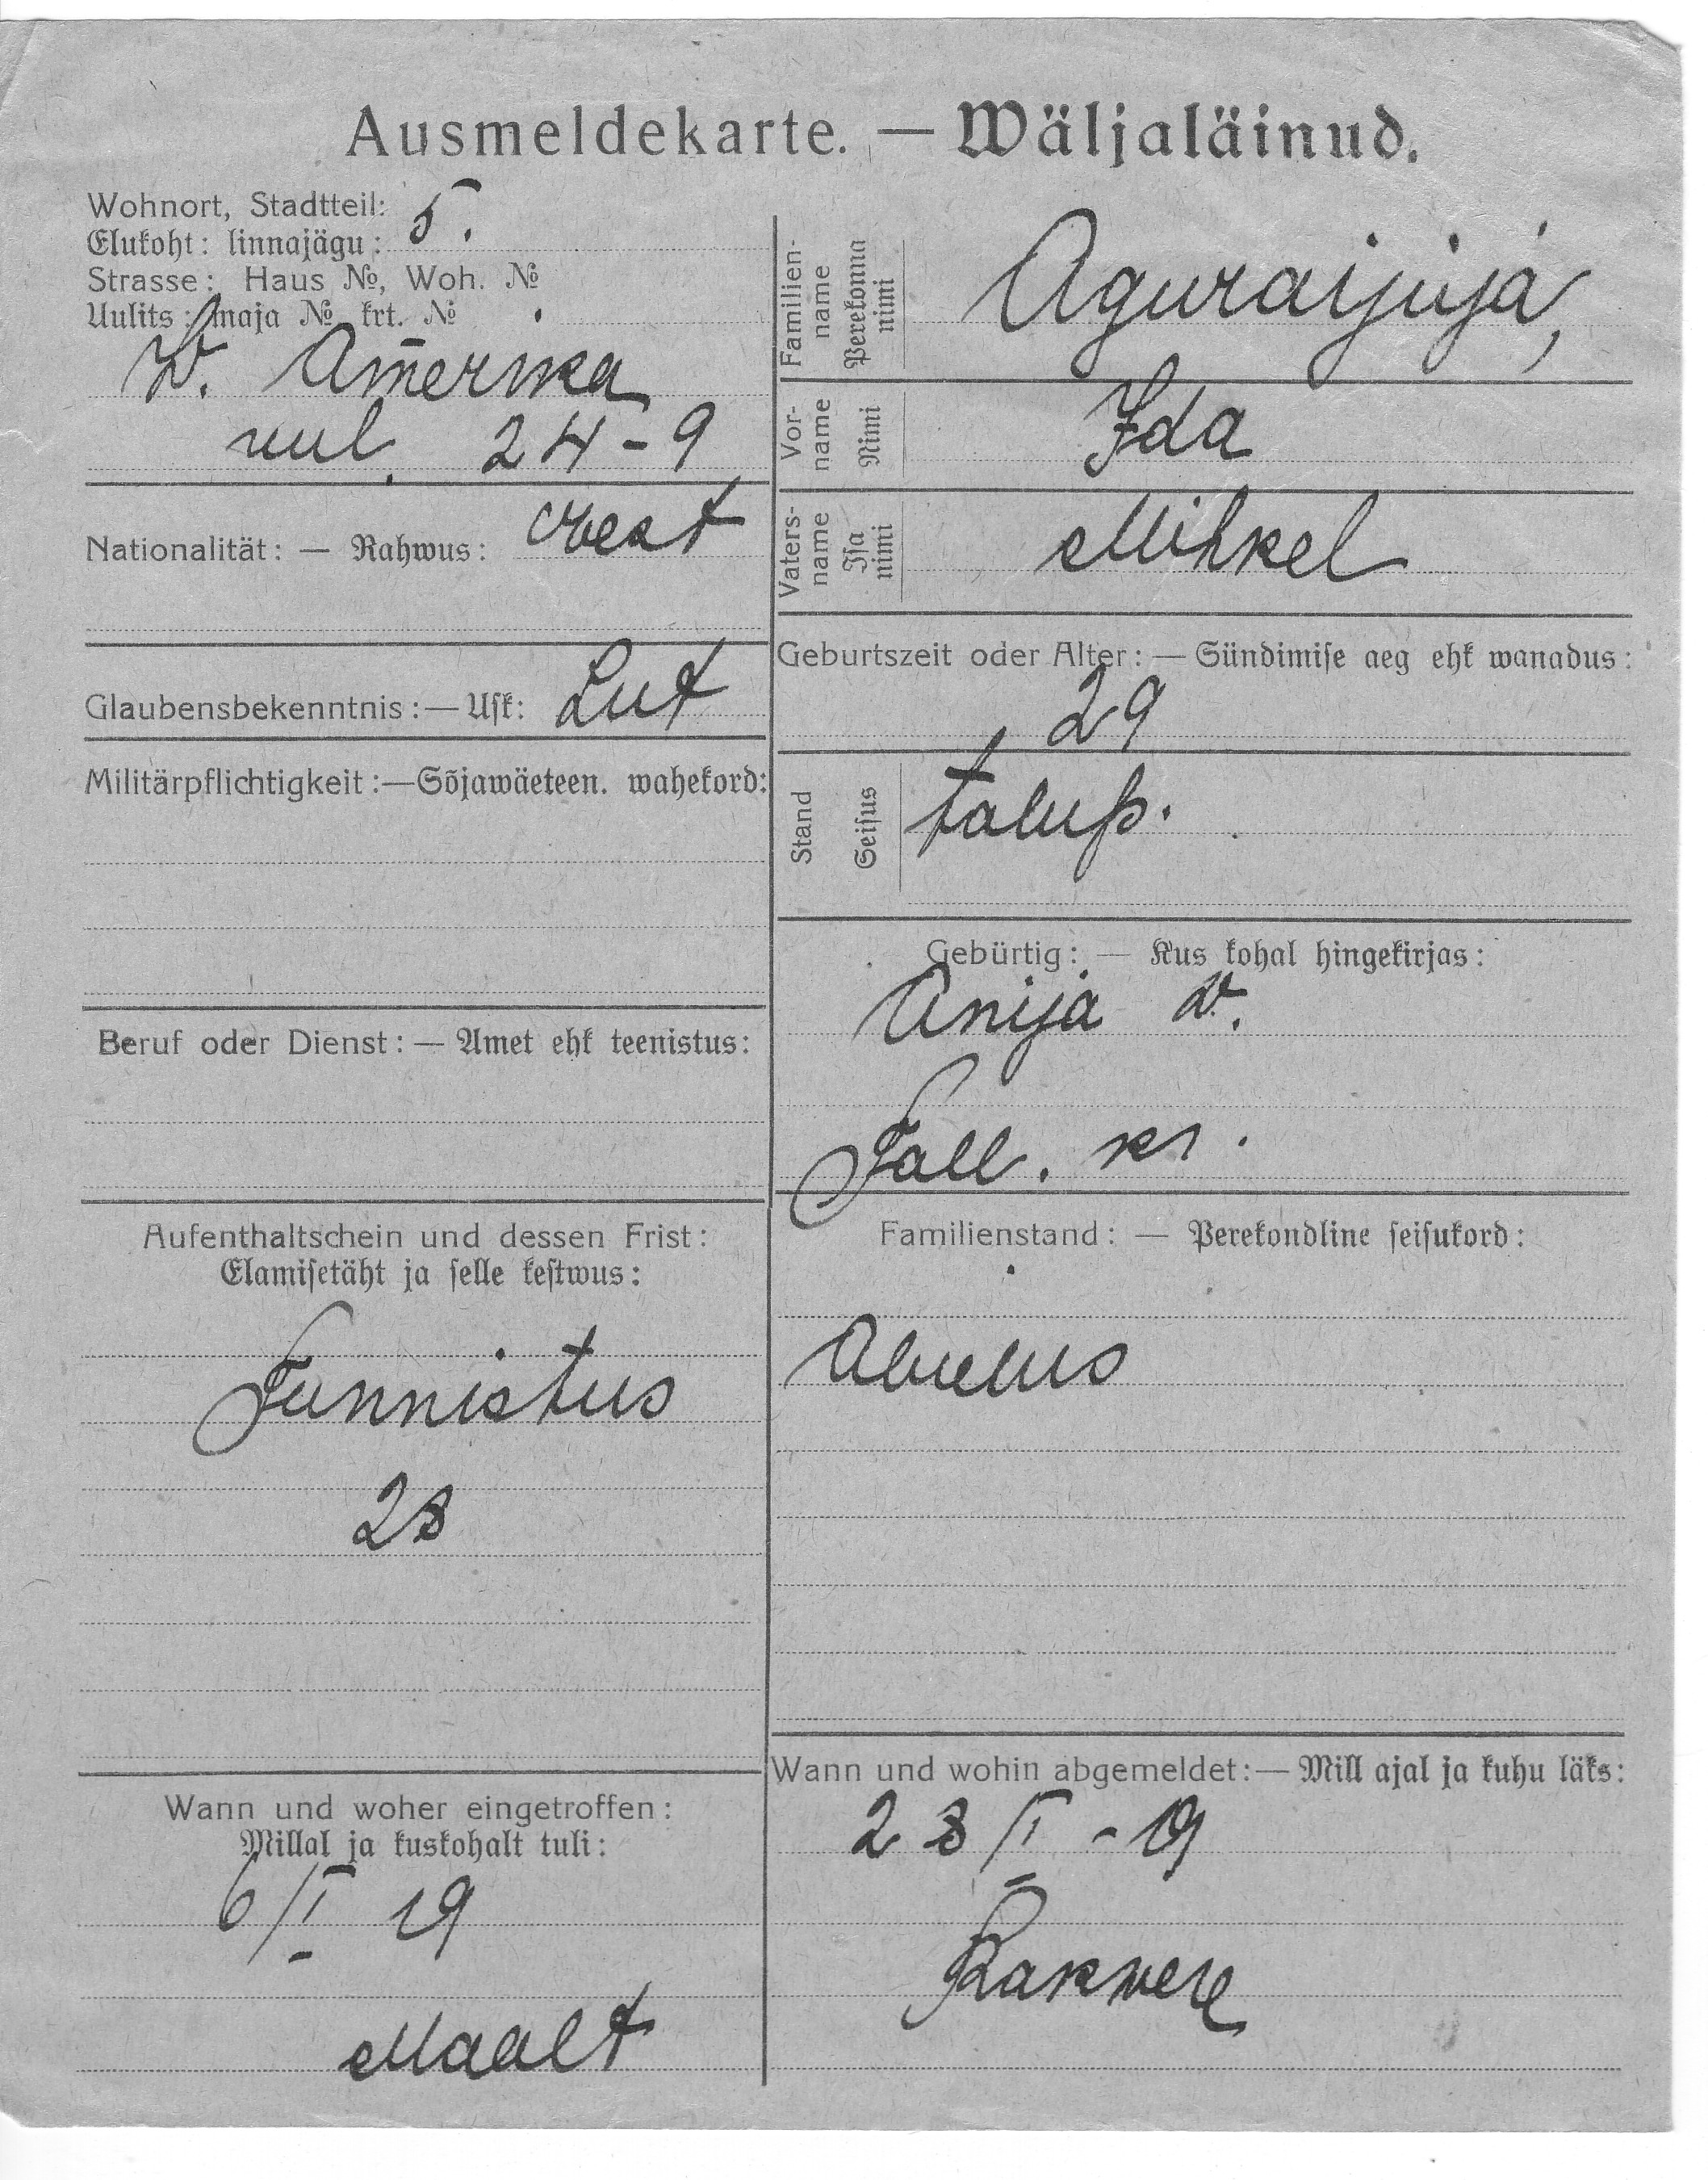 Ausmeldekarte. — Wäljaläinud.
Wohnort, Stadtteil: 5.
Elukoht: linnajägu:
Strasse: Haus №, Woh. №
Uulits: maja № krt. №
W. Amerika
uul. 24-9
Nationalität: — Rahwus: Eest
Glaubensbekenntnis: — Usk: Lut
Militärpflichtigkeit: — Sõjawäeteen. wahekord:
Beruf oder Dienst: — Amet ehk teenistus:
Aufenthaltschein und dessen Frist:
Elamisetäht ja selle kestwus:
Tunnistus
28
Wann und woher eingetroffen:
Millal ja kuskohalt tuli:
6/I 19
Maalt
Familien-
name
Perekonna
nimi
Aguraijuja,
Vor-
name
Nimi
Ida
Vaters-
name
Isa
nimi
Mihkel
Geburtszeit oder Alter: — Sündimise aeg ehk wanadus:
29
Stand
Seisus
talup.
Gebürtig: — Kus kohal hingekirjas:
Anija w.
Tall. kr.
Familienstand: — Perekondline seisukord:
Abielus
Wann und wohin abgemeldet: — Mill ajal ja kuhu läks:
28/I - 19
Rakvere